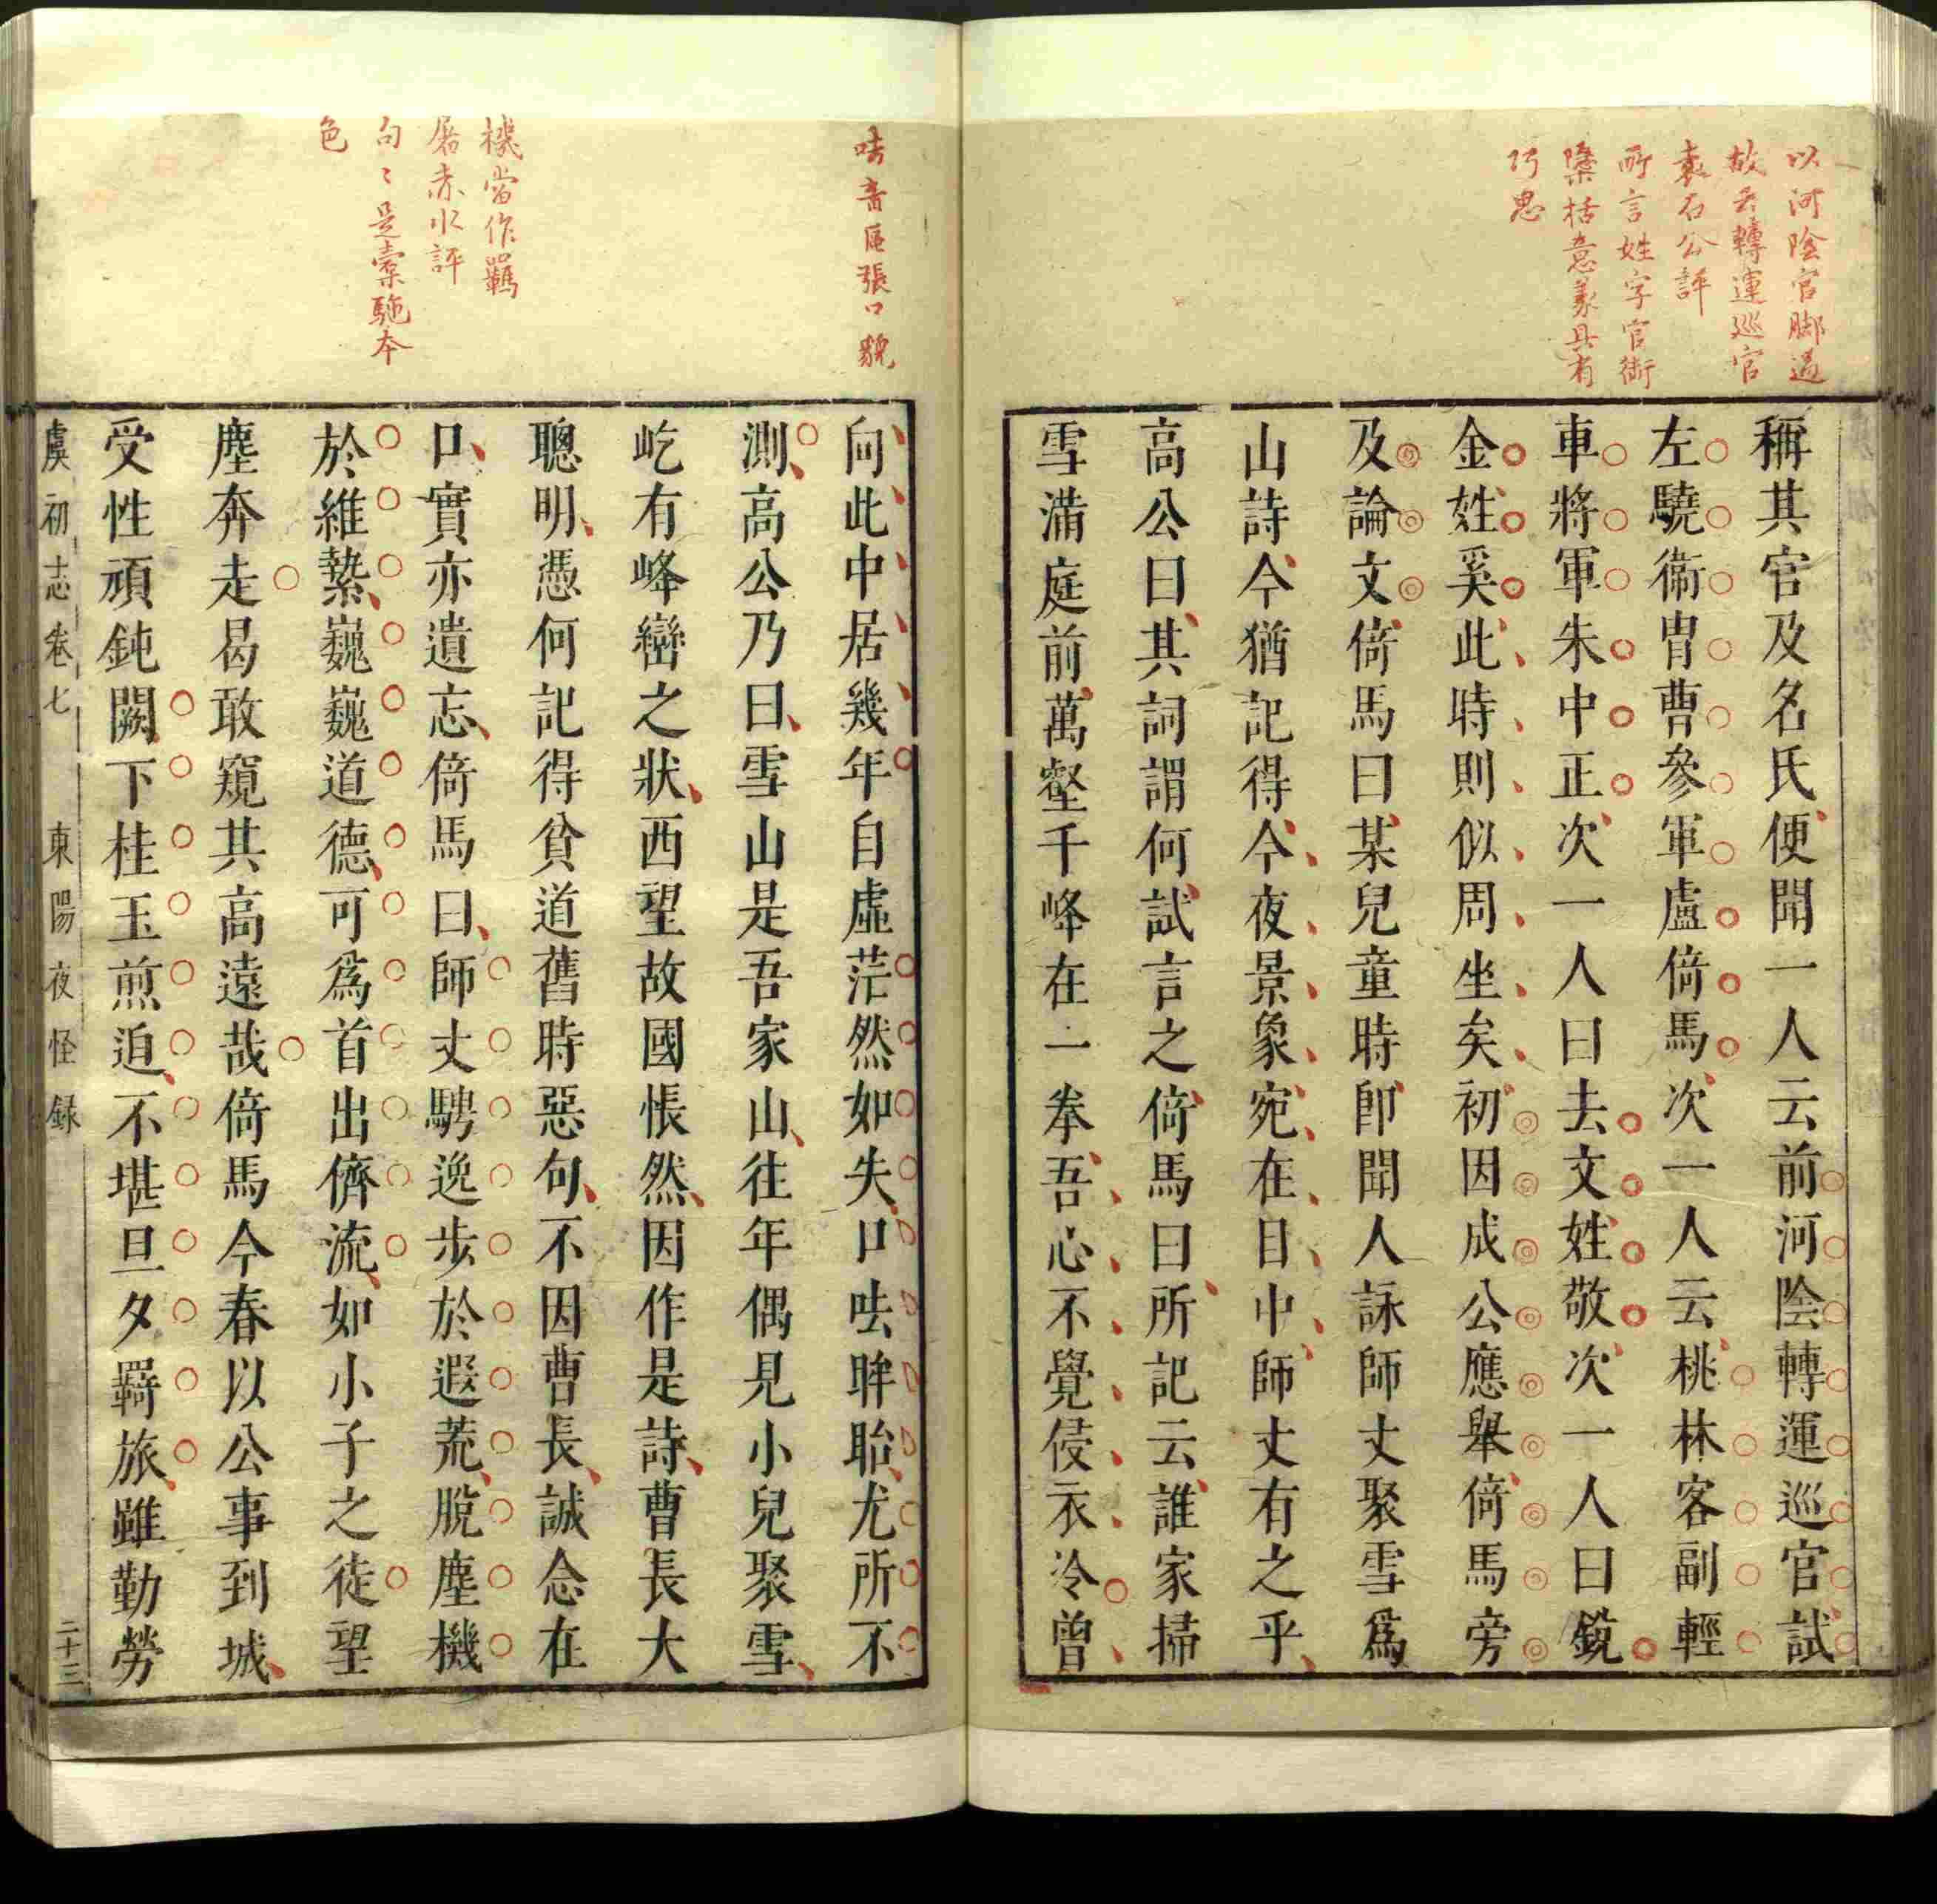 以河陰官脚過
故云轉運巡官
袁石公評
所言姓字官銜
檃栝意義具有
巧思
稱其官及名氏便聞一人云前河陰轉運巡官試
左驍衞冑曹參軍盧倚馬次一人云桃林客副輕
車將軍朱中正次一人曰去文姓敬次一人曰銳
金姓奚此時則似周坐矣初因成公應舉倚馬旁
及論文倚馬曰某兒童時卽聞人詠師丈聚雪爲
山詩今猶記得今夜景象宛在目中師丈有之乎
高公曰其詞謂何試言之倚馬曰所記云誰家掃
雪滿庭前萬壑千峰在一拳吾心不覺侵衣冷曾
呿音區張口貌
機當作羈
屠赤水評
句〻是橐駞本
色
向此中居幾年自虛茫然如失口呿眸眙尤所不
測高公乃曰雪山是吾家山往年偶見小兒聚雪
屹有峰巒之狀西望故國悵然因作是詩曹長大
聰明憑何記得貧道舊時惡句不因曹長誠念在
口實亦遺忘倚馬曰師丈騁逸步於遐荒脫塵機
於維縶巍巍道德可爲首出儕流如小子之徒望
塵奔走曷敢窺其高遠哉倚馬今春以公事到城
受性頑鈍闕下桂玉煎迫不堪旦夕羇旅雖勤勞
虞初志卷七 東陽夜怪録 二十三